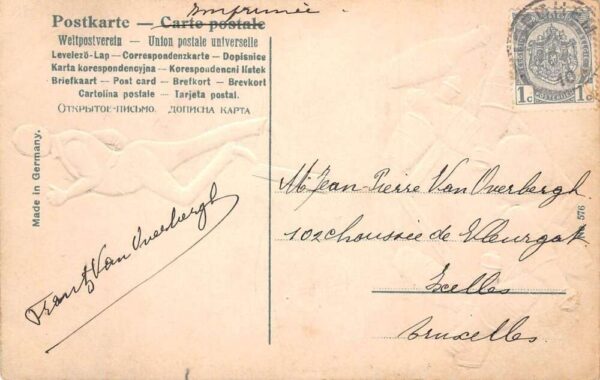 Imprimée
Postkarte — Carte postale
Weltpostverein — Union postale universelle
Levelező-Lap — Correspondenzkarte — Dopisnice
Karta korespondencyjna — Korespondencni listek
Briefkaart — Post card — Brefkort — Brevkort
Cartolina postale — Tarjeta postal.
Открытое-письмо. Дописна карта
Made in Germany.
Frantz Van Overbergh
1c 1c
M. Jean-Pierre Van Overbergh
102 chaussée de Vleurgat
Ixelles
Bruxelles.
576